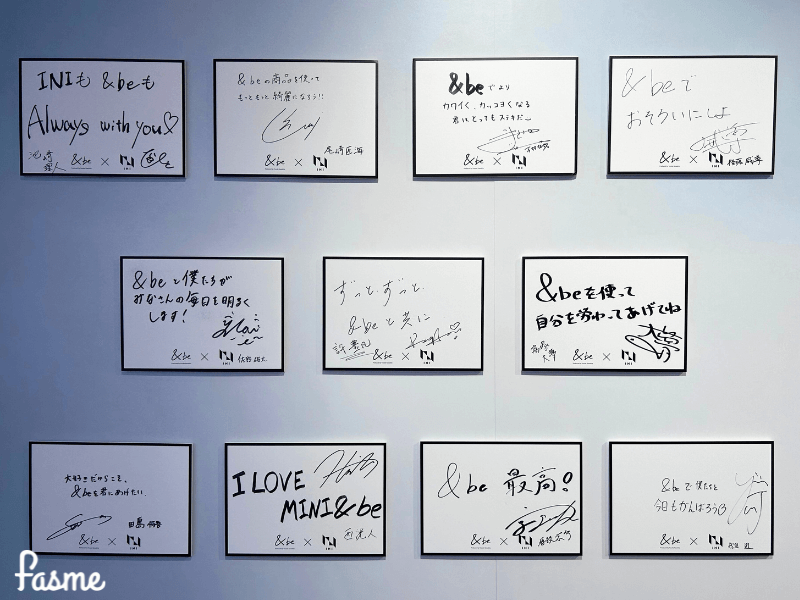 INIも &beも
Always with you♡
池﨑
理人
&be × INI
&beの商品を使って
もっともっと綺麗になろう!!
尾崎匠海
&be × INI
&beでより
カワイく、カッコヨくなる
君はとってもステキだ〜
&be × INI
&beで
おそろいにしよ
&be × INI
&beと僕たちが
みなさんの毎日を明るく
します!
&be × INI
ずっと、ずっと、
&beと共に
許豊凡
&be × INI
&beを使って
自分を労わってあげてね
&be × INI
大好きだからこそ、
&beを君にあげたい。
田島将吾
&be × INI
I LOVE
MINI&be
西洸人
&be × INI
&be 最高!
&be × INI
&beで僕たちと
今日もがんばろう
&be × INI
fasme